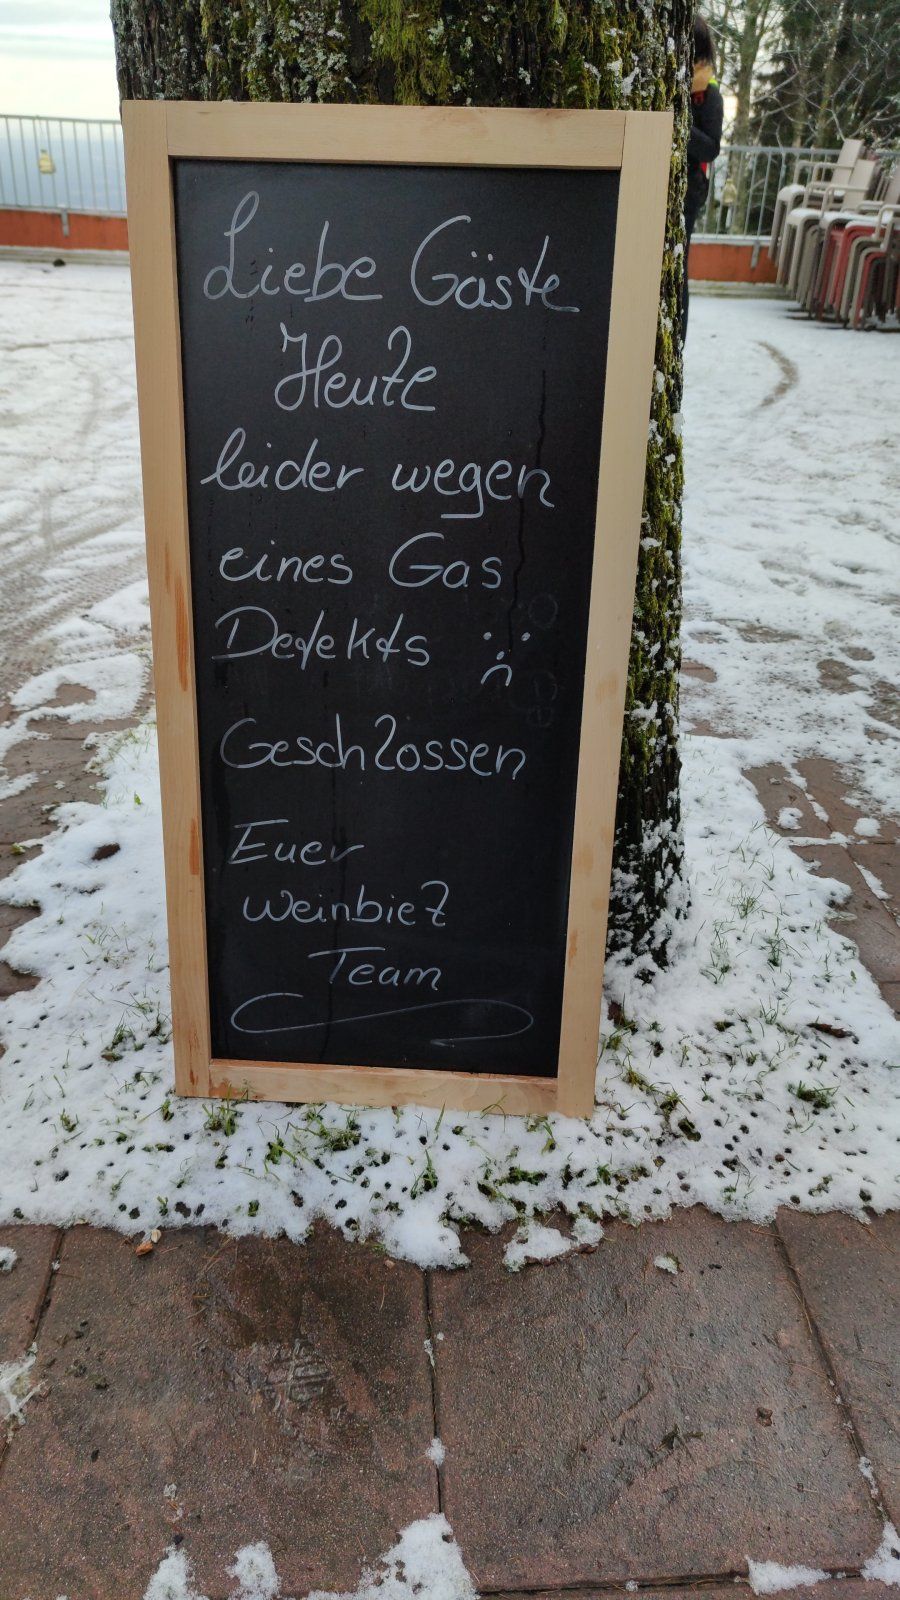 Liebe Gäste
Heute
leider wegen
eines Gas
Defekts :(
Geschlossen
Euer
Weinbiet
Team